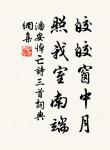 皎皎窗中月
照我室南端
潘安悼亡詩三首詞典
網集